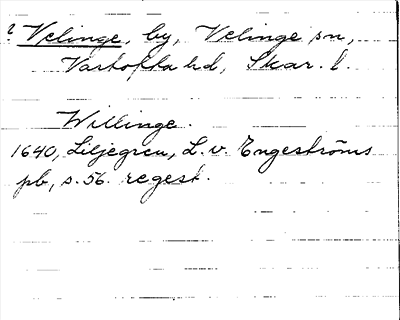 ? Velinge, by, Velinge sn,
Vartofta hd, Skar. l.
Willinge.
1640, Liljegren, L. v. Engeströms
pb, s. 56. regest.